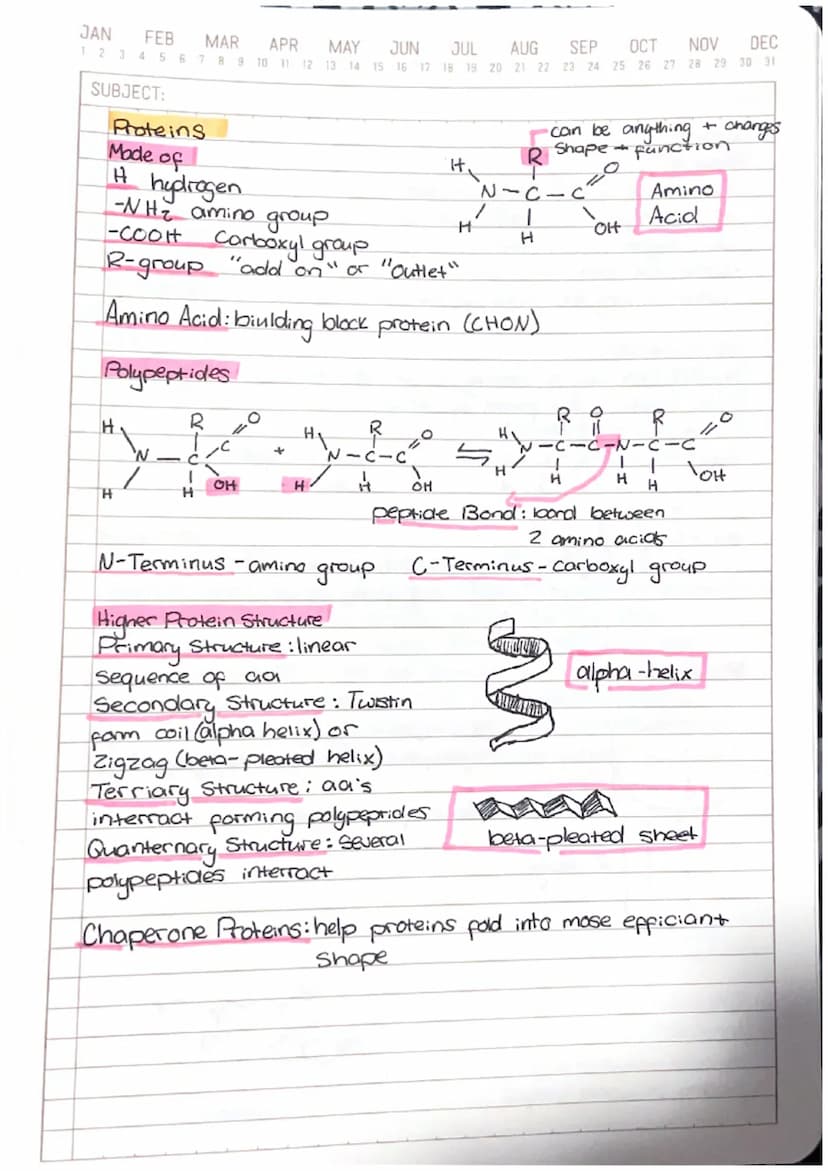 JAN FEB MAR APR MAY JUN JUL AUG SEP OCT NOV DEC
1 2 3 4 5 6 7 8 9 10 11 12 13 14 15 16 17 18 19 20 21 22 23 24 25 26 27 28 29 30 31
SUBJECT:
Proteins
Made of
H hydrogen
-NH2 amino group
-COOH Carboxyl group
R-group "add on" or "Outlet"
can be anything + changes
shape + function
R
H O
N-C-C
H H OH
Amino
Acid
Amino Acid: biulding block protein (CHON)
Polypeptides
H R O H R O H R O R O
N-C-C + N-C-C ⇋ N-C-C-N-C-C
H H OH H H OH H H H H OH
peptide Bond: bond between
2 amino acids
N-Terminus - amino group C-Terminus - carboxyl group
Higher Protein Structure
Primary Structure: linear
sequence of aa
Secondary Structure: Twistin
form coil (alpha helix) or
Zigzag (beta-pleated helix)
Terriary Structure: aa's
interract forming polypeprides
Quanternary Structure: several
polypeptides interract
alpha-helix
beta-pleated sheet
Chaperone Proteins: help proteins fold into mose efficiant
shape